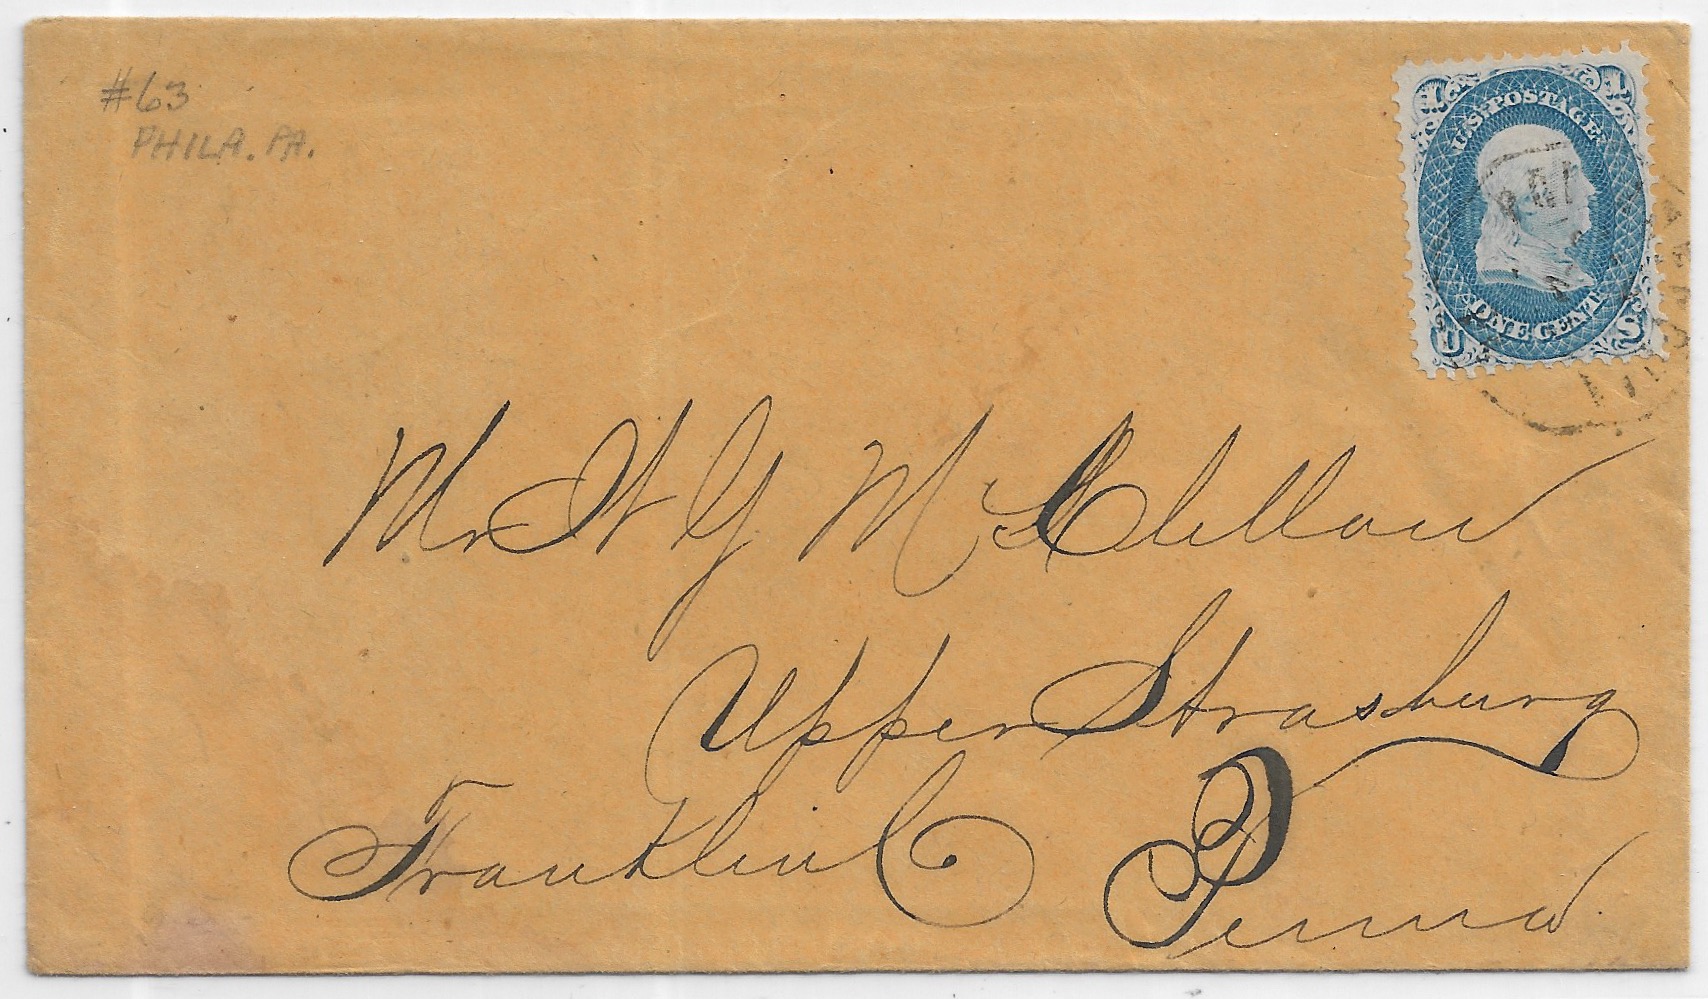 #63
PHILA. PA.
1 1
U.S. POSTAGE
ONE CENT
U S
Mr W G McClellan
Upper Strasburg
Franklin C Penna